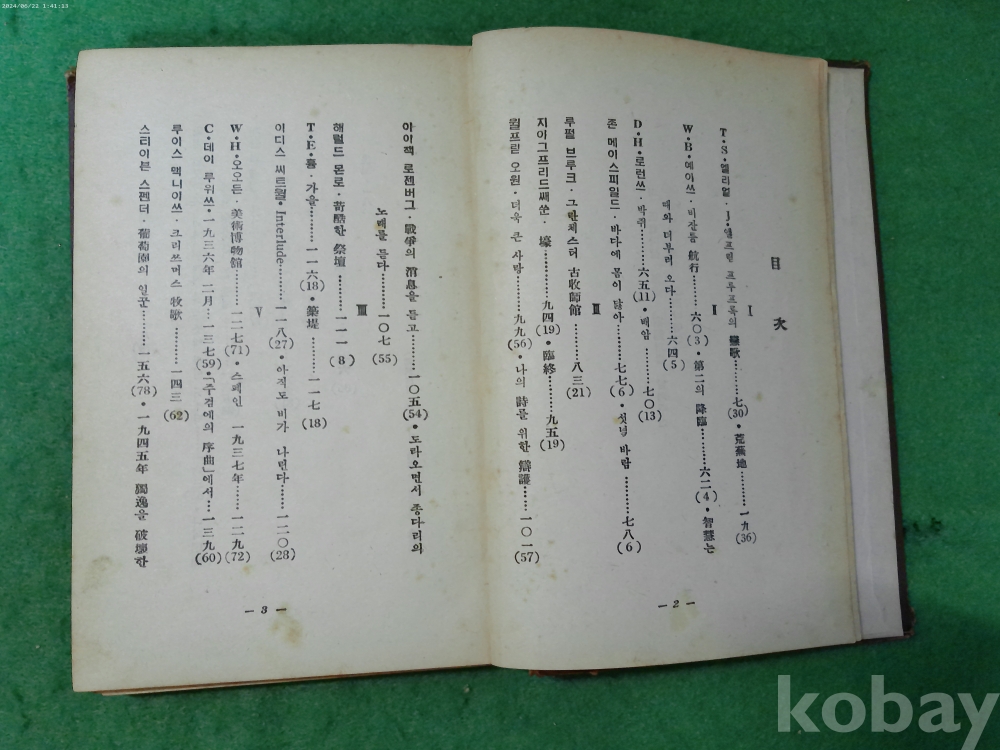 2024/06/22 1:41:13
目次
I
T·S·엘리엍·J·앨프릳 프루프록의 戀歌………七(30)·荒蕪地………一九(36)
II
W·B·예이쓰·비잔튬 航行………六〇(3)·第二의 降臨………六二(4)·智慧는
때와 더부러 오다………六四(5)
D·H·로런쓰·박쥐………六五(11)·배암………七〇(13)
존 메이스피일드·바다에 몸이 닳아………七七(6)·서녘 바람………七八(6)
III
루펄 브루크·그란체스터 古牧師館………八三(21)
지이그프리드 쌔쑨·壕………九四(19)·臨終………九五(19)
윌프릳 오원·더욱 큰 사랑………九九(56)·나의 詩를 위한 辯護………一〇一(57)
— 2 —
아이잭 로젠버그·戰爭의 消息을 듣고………一〇五(54)·도라오면서 종다리의
노래를 듣다………一〇七(55)
III
해럴드 몬로·苛酷한 祭壇………一一一(8)
T·E·흄·가을………一一六(18)·築堤………一一七(18)
이디스 씨트웰·Interlude………一一八(27)·아직도 비가 나린다………一二〇(28)
V
W·H·오오든·美術博物館………一二七(71)·스페인 一九三七年………一二九(72)
C·데이 루위쓰·一九三六年 二月……一三七(59)·「주검에의 序曲」에서……一三九(60)
루이스 맥니이쓰·크리쓰머스 牧歌………一四三(62)
스티이븐 스펜더·葡萄園의 일꾼………一五六(78)·一九四五年 獨逸을 破壞한
— 3 —
kobay